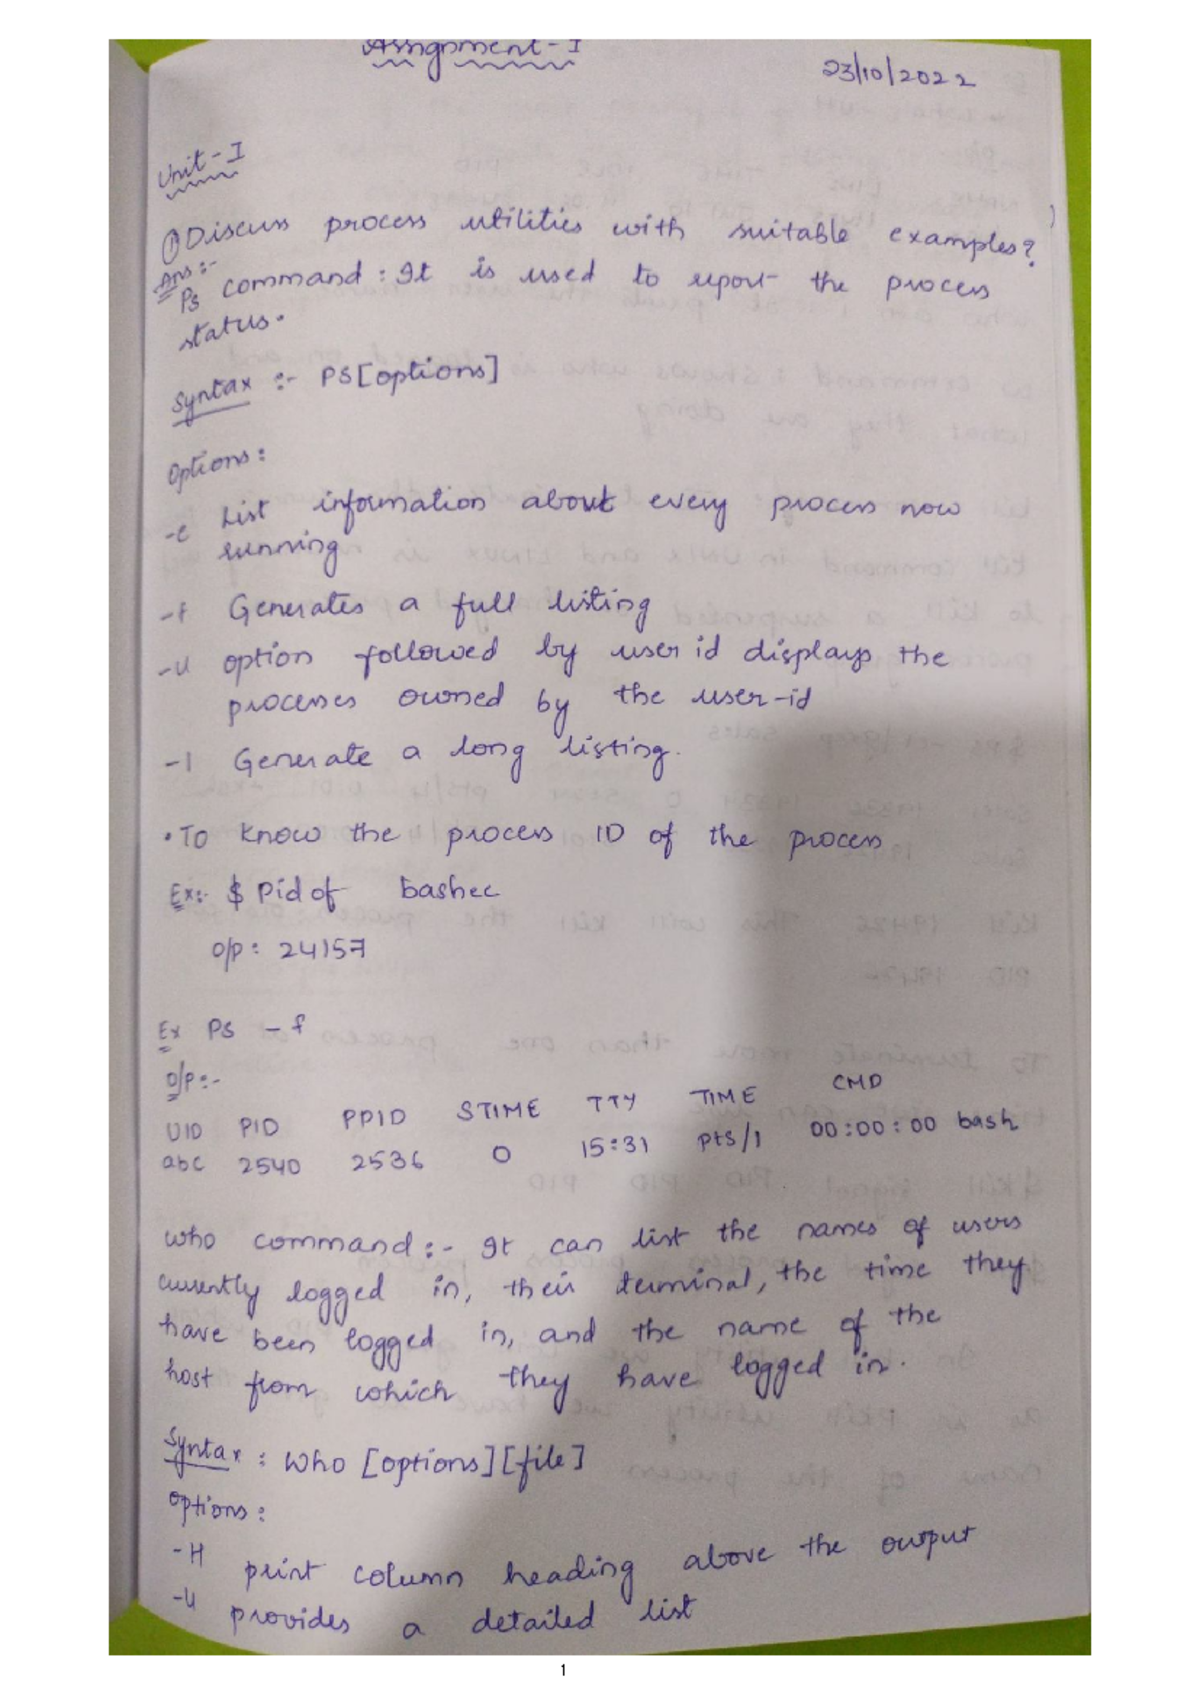 Assignment-I
23/10/2022
Unit-I
① Discuss process utilities with suitable examples?
Ans:-
Ps command: It is used to report the process
status.
Syntax :- PS[options]
Options:
-e List information about every process now
running
-f Generates a full listing
-u option followed by user id displays the
processes owned by the user-id
-l Generate a long listing.
•To know the process ID of the process
Ex:- $ Pidof bashec
o/p: 24157
Ex PS -f
o/p:-
UID PID PPID STIME TTY TIME CMD
abc 2540 2536 0 15:31 pts/1 00:00:00 bash
who command:- It can list the names of users
currently logged in, their terminal, the time they
have been logged in, and the name of the
host from which they have logged in.
Syntax : Who [options][file]
options:
-H print column heading above the output
-u provides a detailed list
1